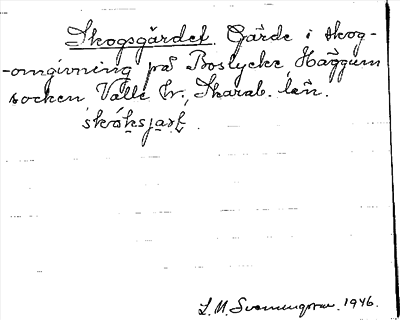 Skogsgärdet. Gärde i skog-
-omgivning på Bostycke, Häggum
socken, Valle hr., Skarab. län.
L. M. Svenungsson. 1946.